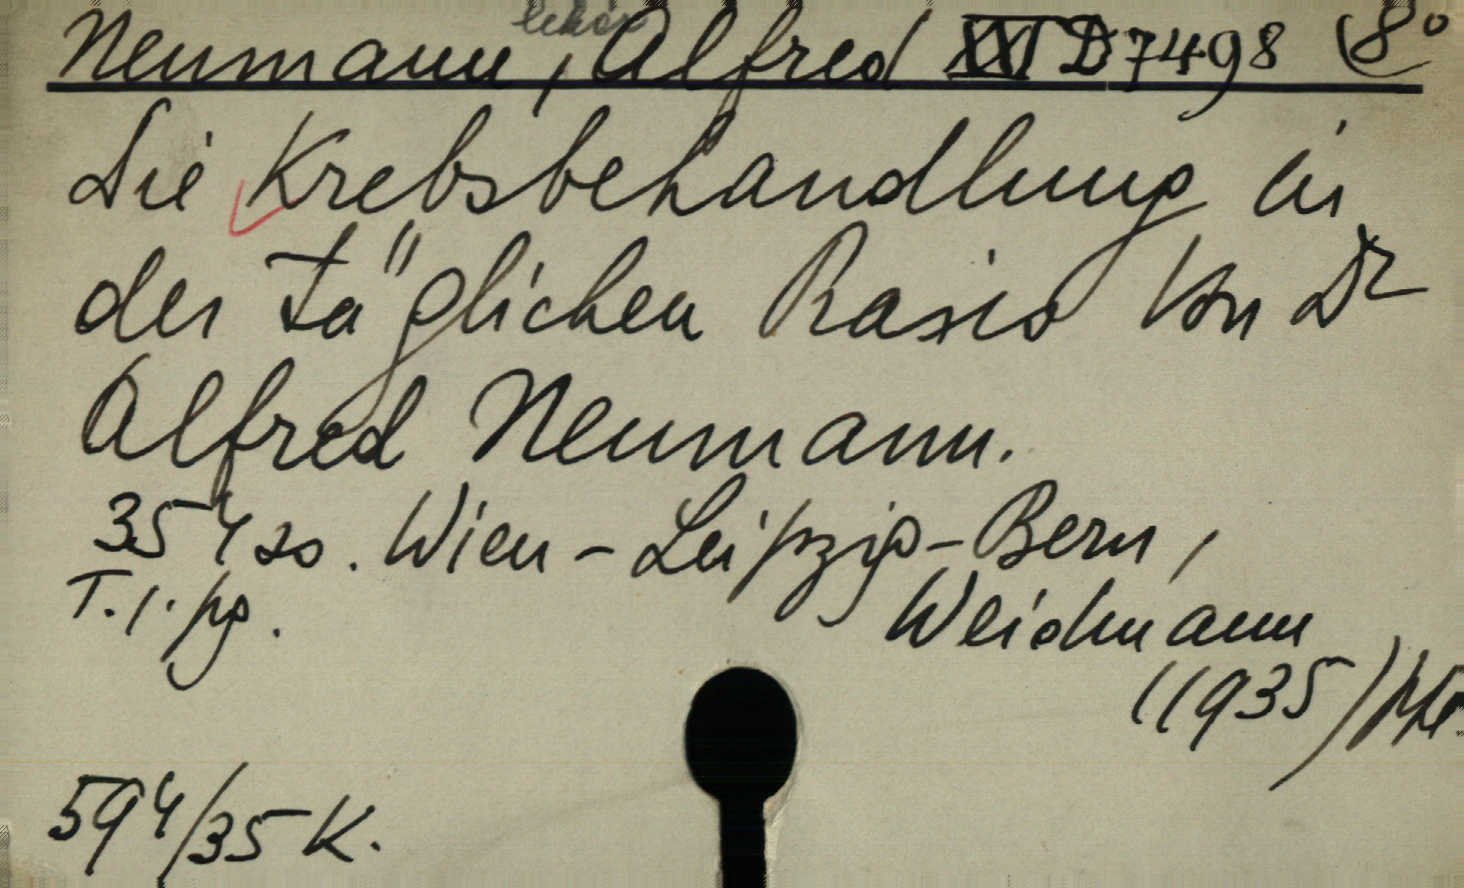 lekár
Neumann, Alfred XXI D 7498 8°
Die Krebsbehandlung in
der täglichen Praxis Von Dr
Alfred Neumann.
354 so. Wien - Leipzig - Bern,
T. 1. pg. Weidmann
(1935)
594/35 K.